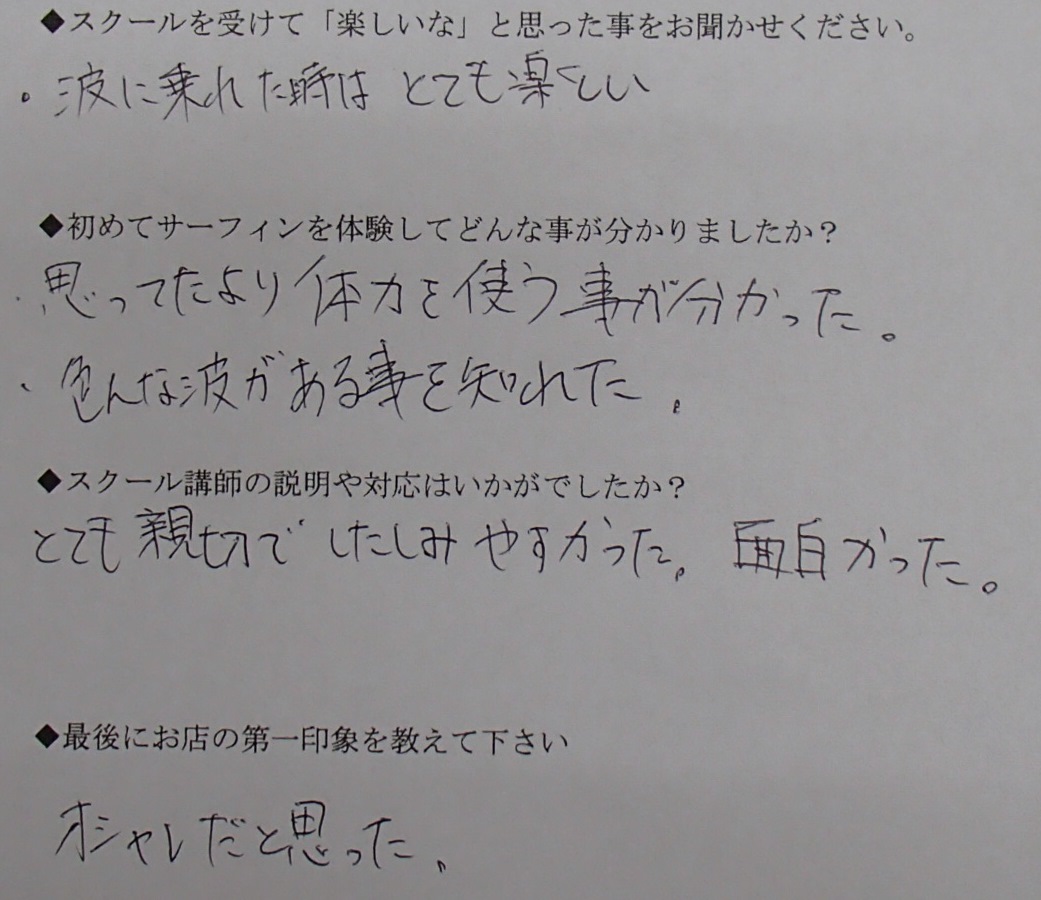 ◆スクールを受けて「楽しいな」と思った事をお聞かせください。
・波に乗れた時は とても楽しい
◆初めてサーフィンを体験してどんな事が分かりましたか？
・思ってたより体力を使う事が分かった。
・色んな波がある事を知れた。
◆スクール講師の説明や対応はいかがでしたか？
とても親切で したしみ やすかった。 面白かった。
◆最後にお店の第一印象を教えて下さい
オシャレだと思った。